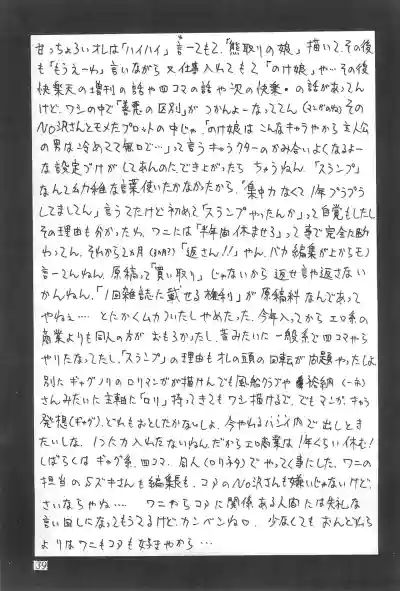 甘っちょろいオレは「ハイハイ」言ーてもて、「熊取りの娘」描いて、その後
も「もうえーわ」言いながら又仕事入れてもて「のけ娘」や…その後
快楽天の増刊の話や四コマの話や次の快楽・の話があってん
けど、ワシの中で「善悪の区別」がつかんよーなっててん(マンガのね)その
NO沢さんとモメたプロットの中じゃ、「のけ娘はこんなキャラやから主人公
の男は冷めてて無口で…」って言うキャラクターのかみ合いよくなるよー
な設定づけがしてあんのに、でき上がったらちゃうねん。「スランプ」
なんて幼稚な言葉使いたかなかったから、「集中力なくて1年プラプラ
してましてん」言うてたけど初めて「スランプやったんか」って自覚もしたし
その理由も分かったわ、ワニには「半年間休ませろ」って事で完全に断
わってん。それから2ヵ月(3ヵ月?)「返さん!!」やん、バカ編集が上からモノ
言ーてんねん。原稿って「買い取り」じゃないから返せ言や返さない
かんねん。「1回雑誌に載せる権利」が原稿料なんであって
やねぇ… とにかくムカついたしやめたった、今年入ってからエロ系の
商業よりも同人の方がおもろかったし、昔みたいに一般系で四コマやら
やりたなってたし、「スランプ」の理由もオレの頭の回転が問題やったしよ
別にギャグノリのロリマンガが描けんでも風船クラブや
さんみたいに主軸に「ロリ」持ってきてもワシ描けるで、でもマンガ、キャラ
発想(ギャグ)、どれもおとしたかないしよ、今やれるハンイ内で出しとき
たいしな、1つに力入れたないねん、だからエロ商業は1年くらい休も!
しばらくはギャグ系、四コマ、同人(ロリネタ)でやってく事にした、ワニの
担当のSズキさんも編集長も、コアのNO沢さんも嫌いじゃないけど、
さいならやね… ワニやらコアに関係ある人間たには失礼な
言い回しになってもうてるけど、カンベンねロ、少なくてもおんどれら
よりはワニもコアも好きやから…
39